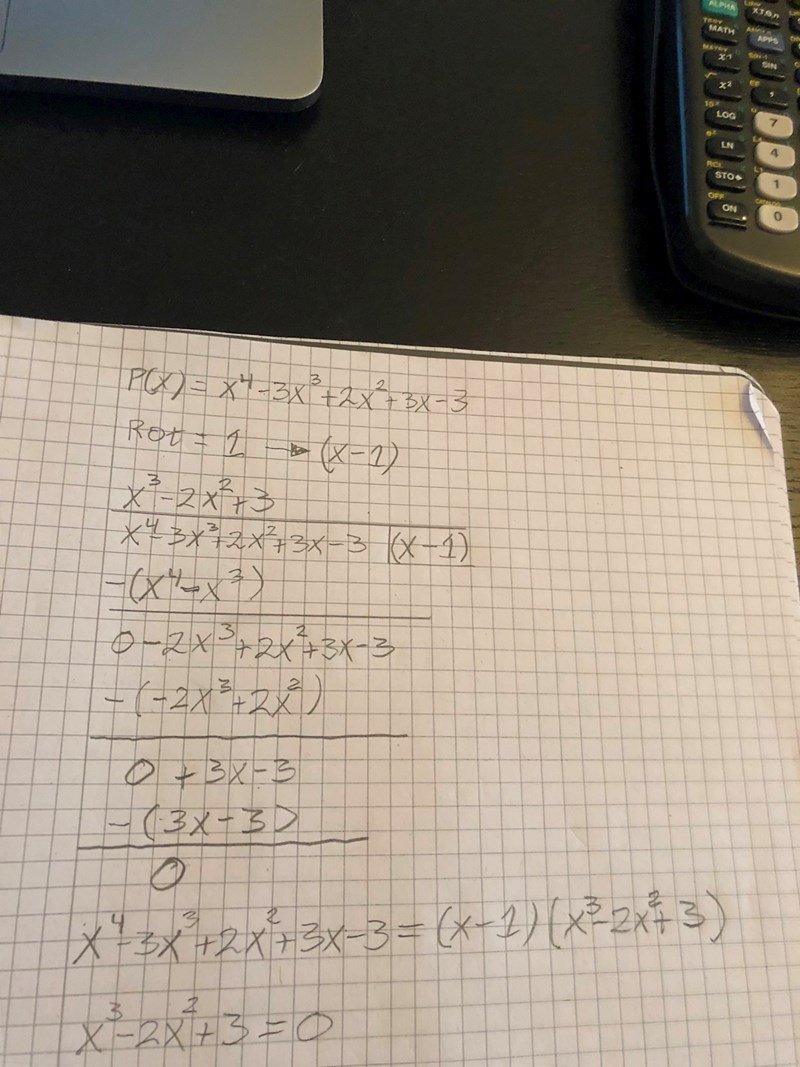 ALPHA
X,T,Θ,n
MATH
APPS
x⁻¹
SIN
x²
,
LOG
7
LN
4
STO▸
1
ON
0
OFF
P(x) = x⁴-3x³+2x²+3x-3
Rot = 1 → (x-1)
x³-2x²+3
x⁴-3x³+2x²+3x-3 (x-1)
-(x⁴-x³)
0-2x³+2x²+3x-3
-(-2x³+2x²)
0 +3x-3
-(3x-3)
0
x⁴-3x³+2x²+3x-3=(x-1)(x³-2x²+3)
x³-2x²+3=0